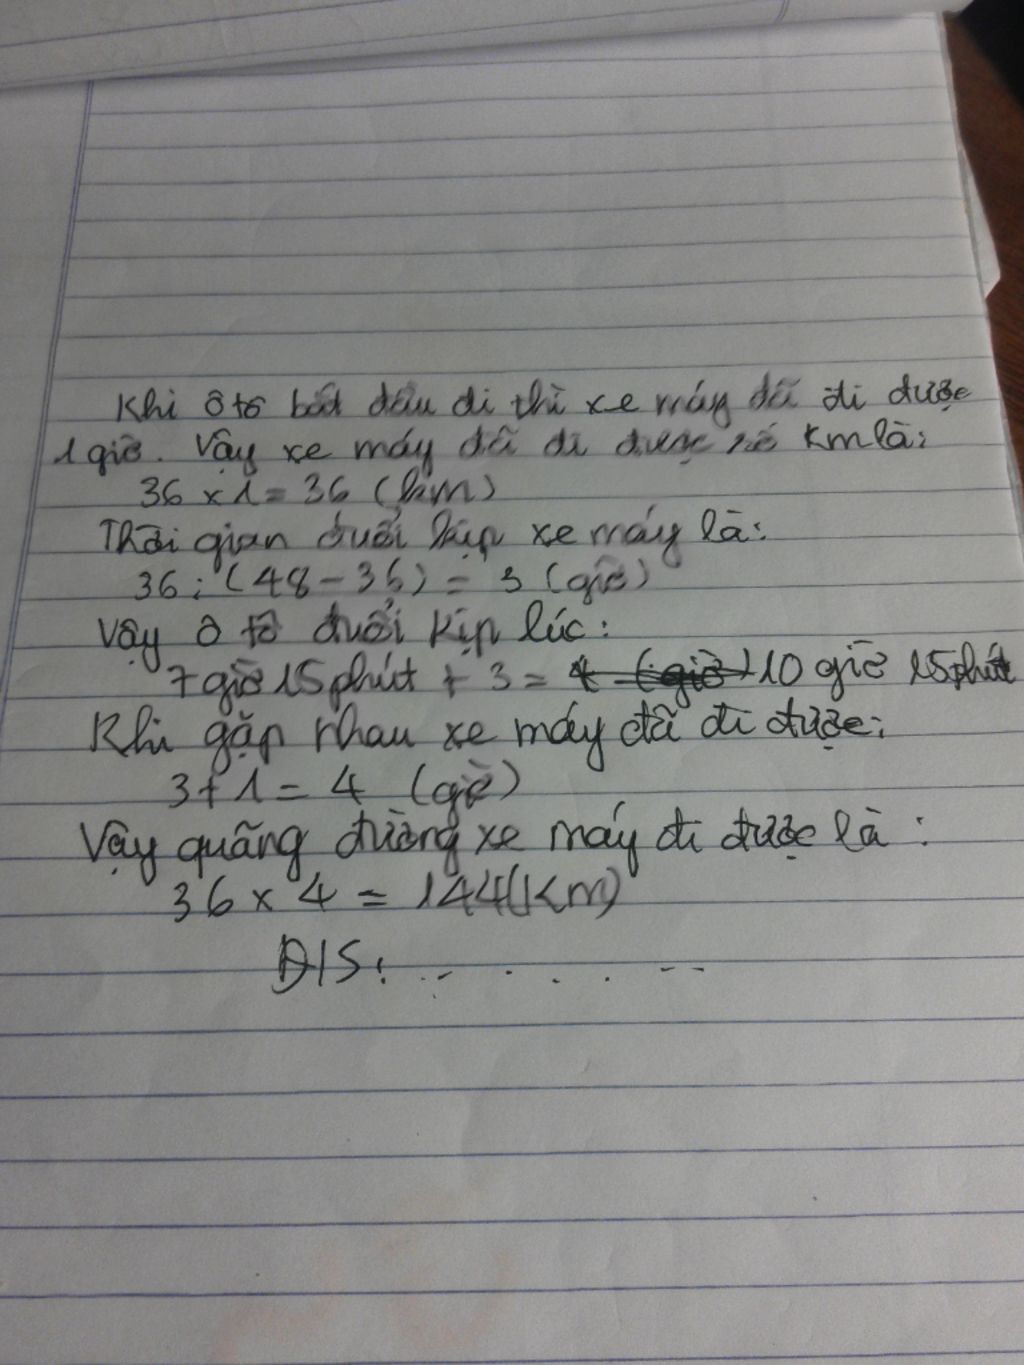 Khi ô tô bắt đầu đi thì xe máy đã đi được
1 giờ. Vậy xe máy đã đi được số km là:
36 x 1 = 36 (km)
Thời gian đuổi kịp xe máy là:
36 : (48 - 36) = 3 (giờ)
Vậy ô tô đuổi kịp lúc:
7 giờ 15 phút + 3 = 4 (giờ) 10 giờ 15 phút
Khi gặp nhau xe máy đã đi được:
3 + 1 = 4 (giờ)
Vậy quãng đường xe máy đi được là :
36 x 4 = 144 (km)
Đ/S: . . . . . . .